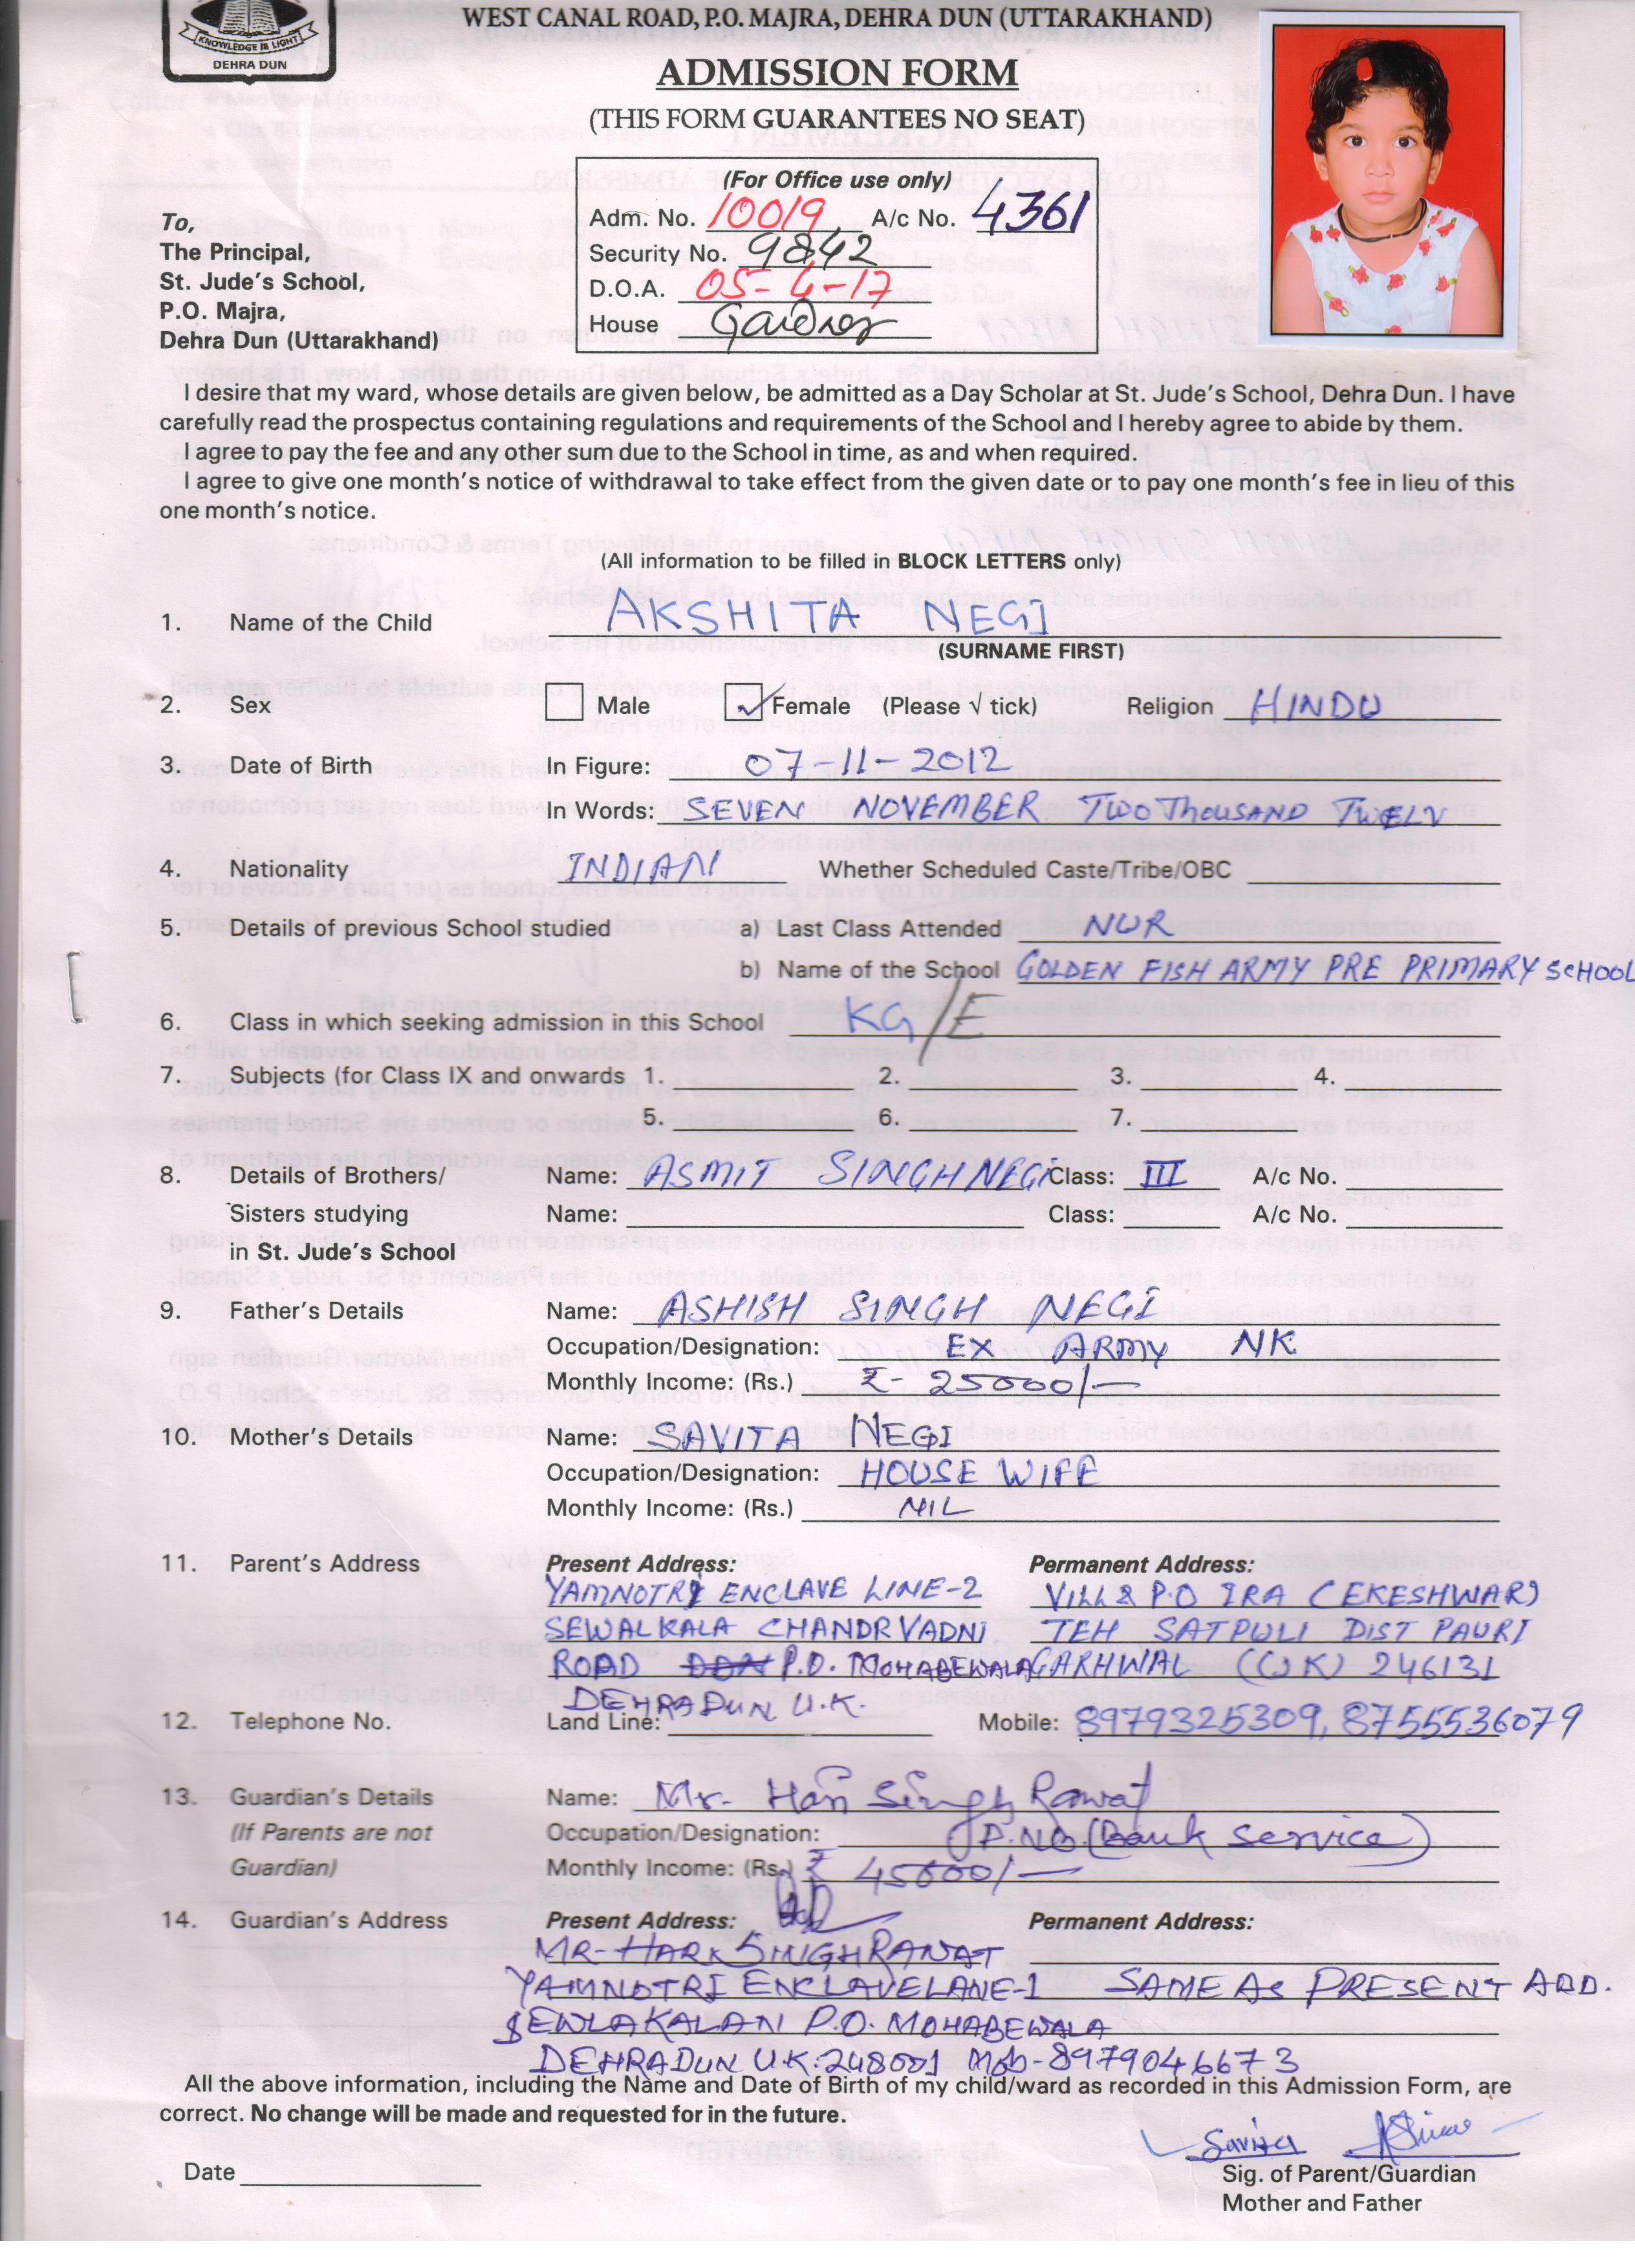 KNOWLEDGE IS LIGHT
DEHRA DUN
WEST CANAL ROAD, P.O. MAJRA, DEHRA DUN (UTTARAKHAND)
ADMISSION FORM
(THIS FORM GUARANTEES NO SEAT)
(For Office use only)
Adm. No. 10019 A/c No. 4361
Security No. 9842
D.O.A. 05-4-17
House
To,
The Principal,
St. Jude's School,
P.O. Majra,
Dehra Dun (Uttarakhand)
I desire that my ward, whose details are given below, be admitted as a Day Scholar at St. Jude's School, Dehra Dun. I have
carefully read the prospectus containing regulations and requirements of the School and I hereby agree to abide by them.
I agree to pay the fee and any other sum due to the School in time, as and when required.
I agree to give one month's notice of withdrawal to take effect from the given date or to pay one month's fee in lieu of this
one month's notice.
(All information to be filled in BLOCK LETTERS only)
1. Name of the Child AKSHITA NEGI
(SURNAME FIRST)
2. Sex Male ✓ Female (Please √ tick) Religion HINDU
3. Date of Birth In Figure: 07-11-2012
In Words: SEVEN NOVEMBER TWO THOUSAND TWELV
4. Nationality INDIAN Whether Scheduled Caste/Tribe/OBC
5. Details of previous School studied a) Last Class Attended NUR
b) Name of the School GOLDEN FISH ARMY PRE PRIMARY SCHOOL
6. Class in which seeking admission in this School KG/E
7. Subjects (for Class IX and onwards 1. 2. 3. 4.
5. 6. 7.
8. Details of Brothers/ Name: ASMIT SINGH NEGI Class: III A/c No.
Sisters studying Name: Class: A/c No.
in St. Jude's School
9. Father's Details Name: ASHISH SINGH NEGI
Occupation/Designation: EX ARMY NK
Monthly Income: (Rs.) ₹- 25000/-
10. Mother's Details Name: SAVITA NEGI
Occupation/Designation: HOUSE WIFE
Monthly Income: (Rs.) NIL
11. Parent's Address Present Address: Permanent Address:
YAMNOTRI ENCLAVE LINE-2 VILL & P.O IRA (EKESHWAR)
SEWALKALA CHANDRVADNI TEH SATPULI DIST PAURI
ROAD DDN P.O. MOHABEWALA GARHWAL (UK) 246131
DEHRADUN U.K.
12. Telephone No. Land Line: Mobile: 8979325309, 8755536079
13. Guardian's Details Name: Mr. Hari Singh Rawat
(If Parents are not Occupation/Designation: P.N.B. (Bank service)
Guardian) Monthly Income: (Rs.) ₹ 45000/-
14. Guardian's Address Present Address: Permanent Address:
MR- HARK SINGH RAWAT
YAMNOTRI ENCLAVE LANE-1 SAME AS PRESENT ADD.
SEWLAKALAN P.O. MOHABEWALA
DEHRADUN U.K. 248001 Mob-8979046673
All the above information, including the Name and Date of Birth of my child/ward as recorded in this Admission Form, are
correct. No change will be made and requested for in the future.
Savita
Date Sig. of Parent/Guardian
Mother and Father